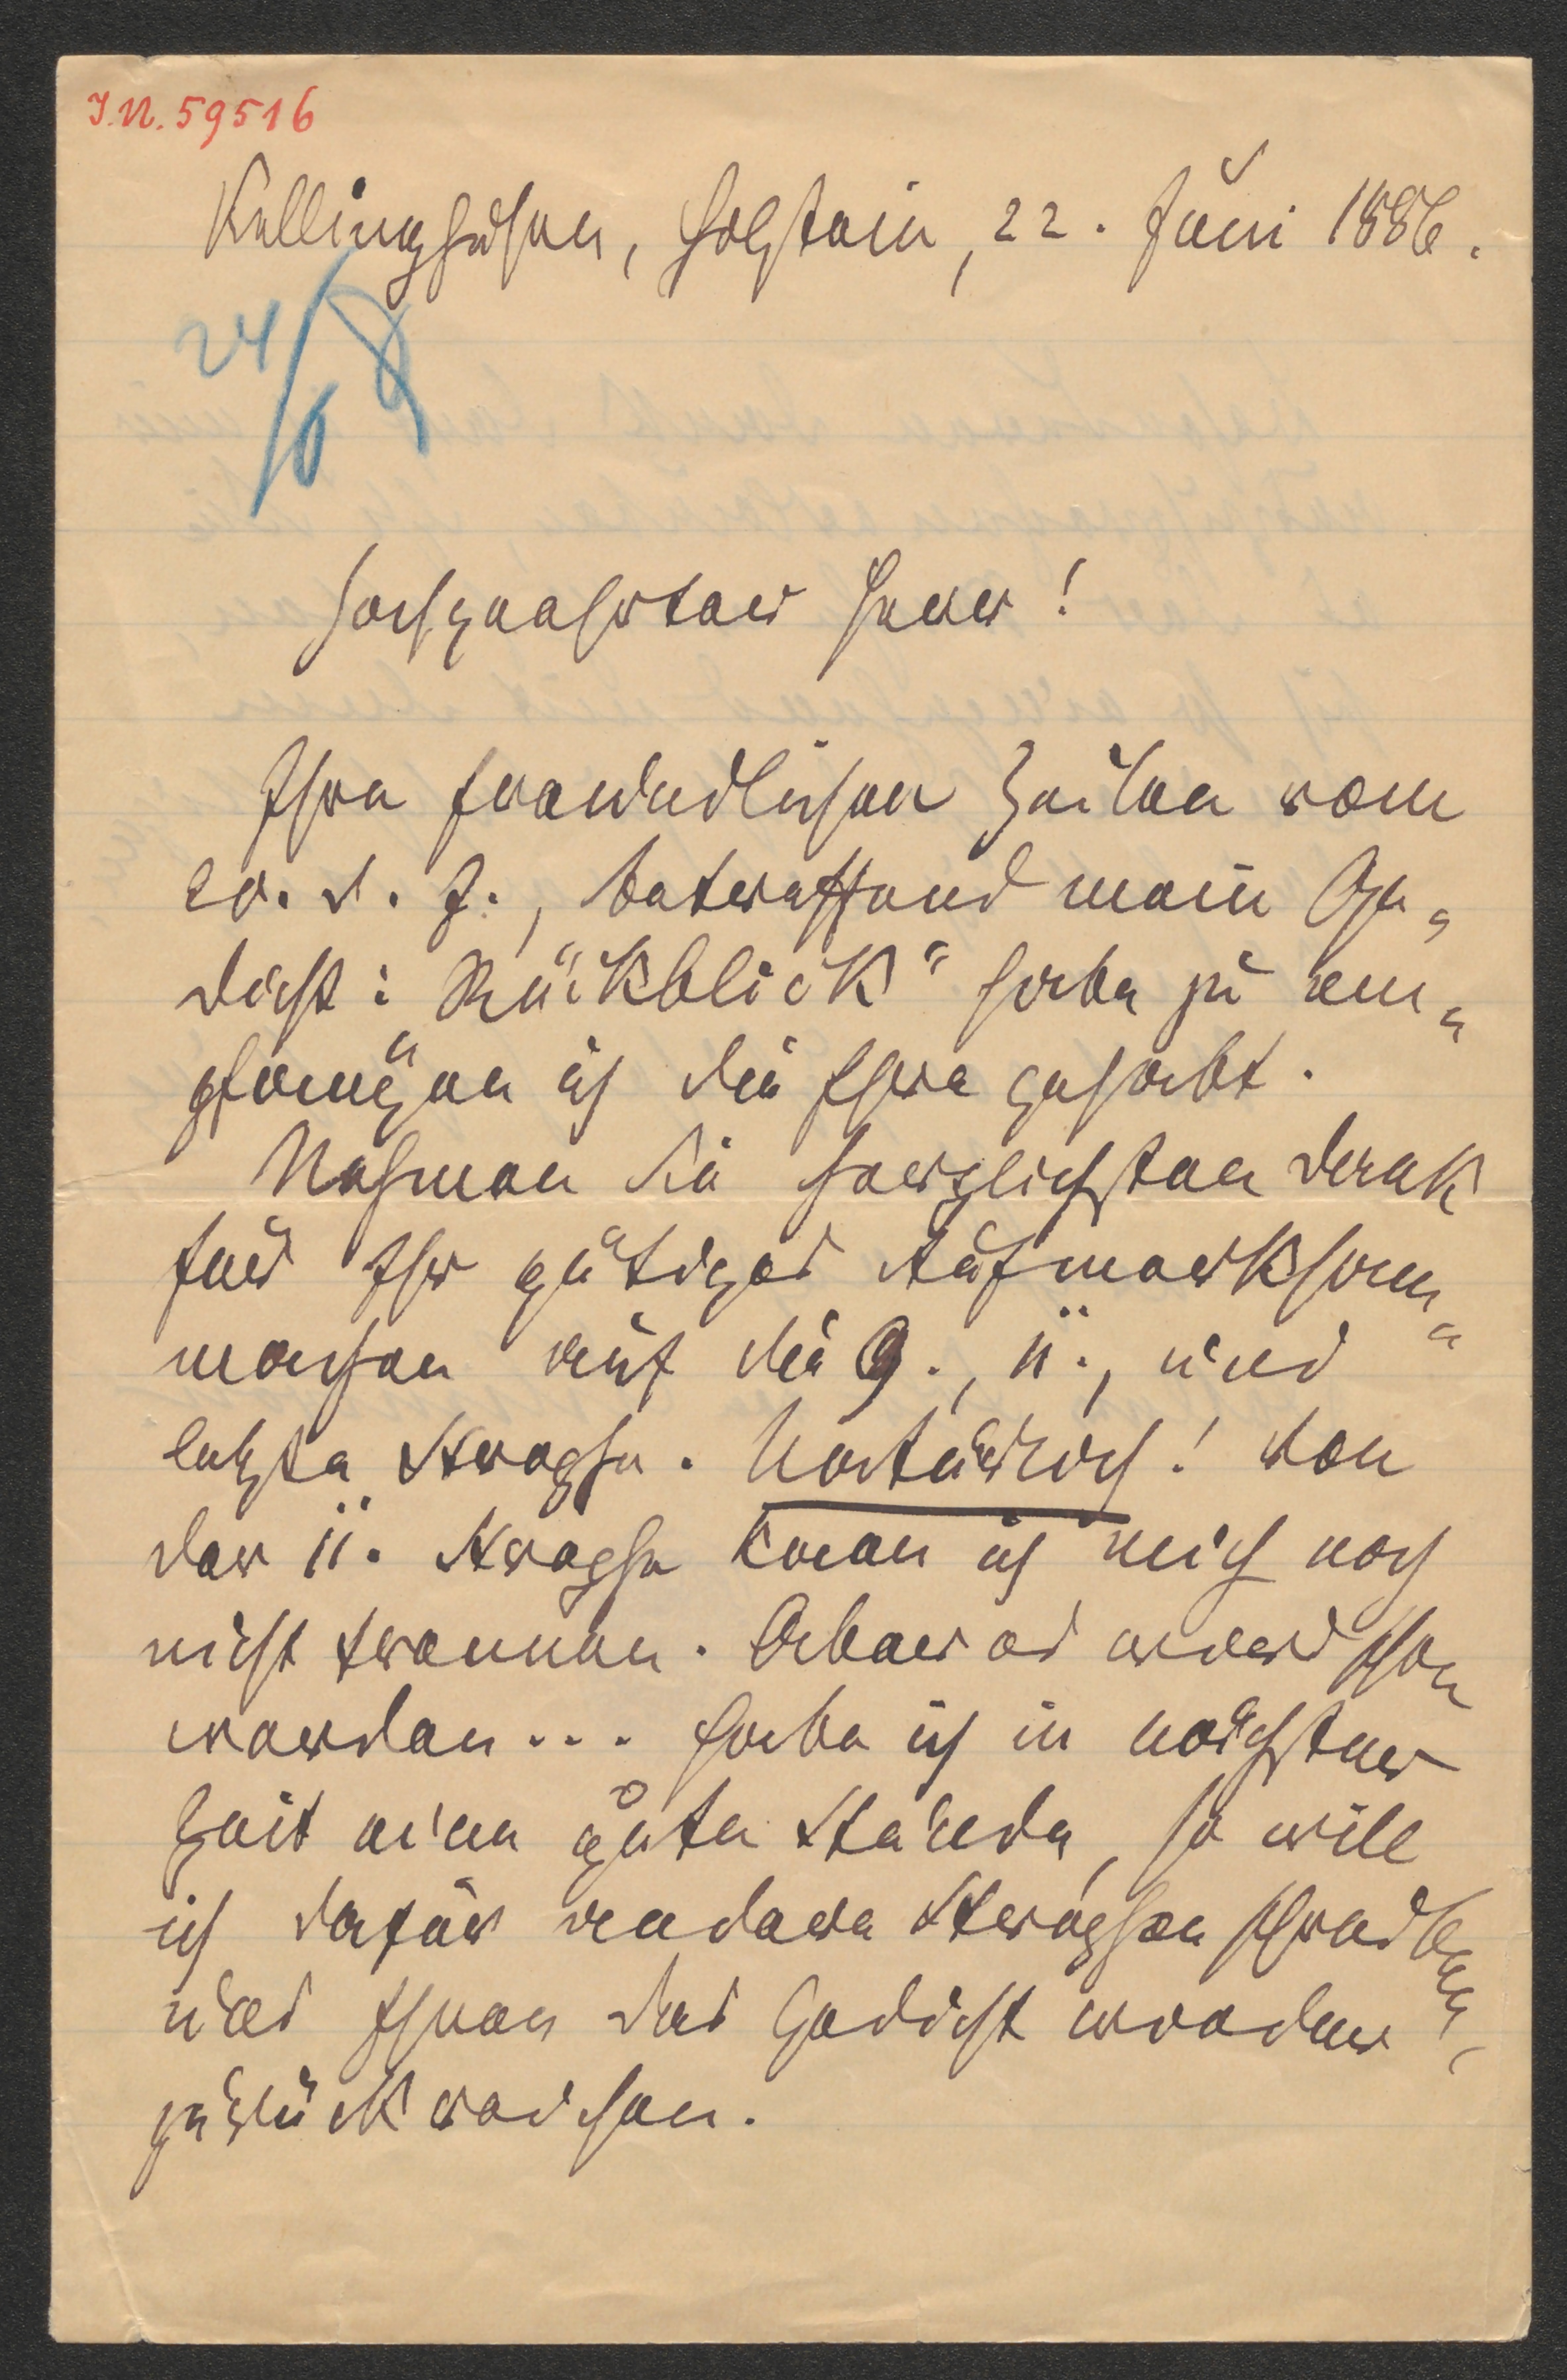 I.N. 59516
Kellinghusen, Holstein, 22. Juni 1886.
24/6
Hochgeehrter Herr!
Ihre freundlichen Zeilen vom
20. d. J., betreffend mein Ge„
dicht: „Rückblick“ habe zu em„
pfangen ich die Ehre gehabt.
Nehmen Sie herzlichsten Dank
für Ihr gütiges Aufmerksam„
machen auf die 9., 11., und
letzte Strophe. Natürlich! Von
der 11. Strophe kann ich mich noch
nicht trennen. Aber es wird schon
werden... Habe ich in nächster
Zeit eine gute Stunde, so will
ich dafür andere Strophen schreiben,
und Ihnen das Gedicht wieder
zurückreichen.